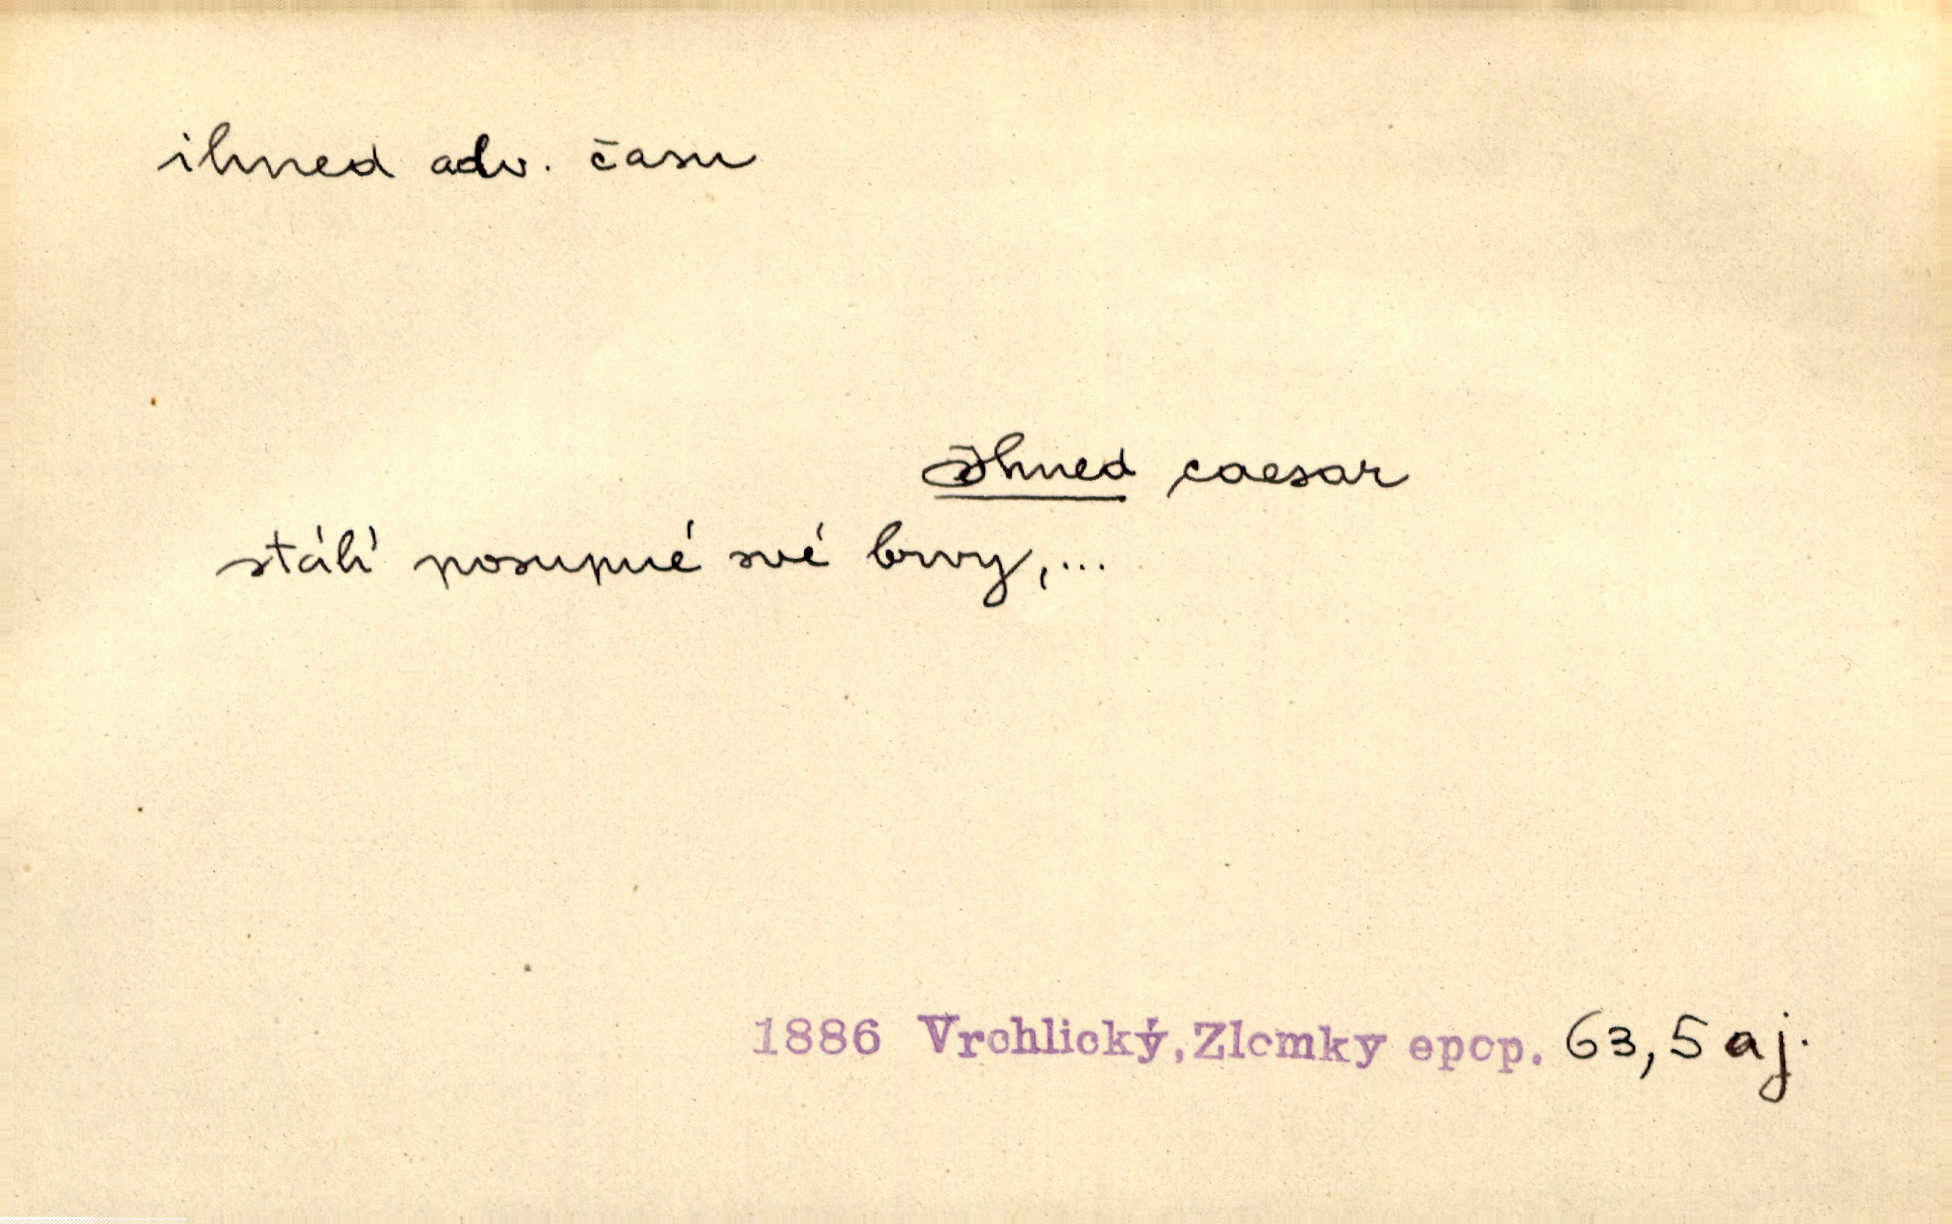 ihned adv. času
Ihned caesar
stáhl posupné své brvy,...
1886 Vrchlický, Zlomky epop. 63,5 aj.